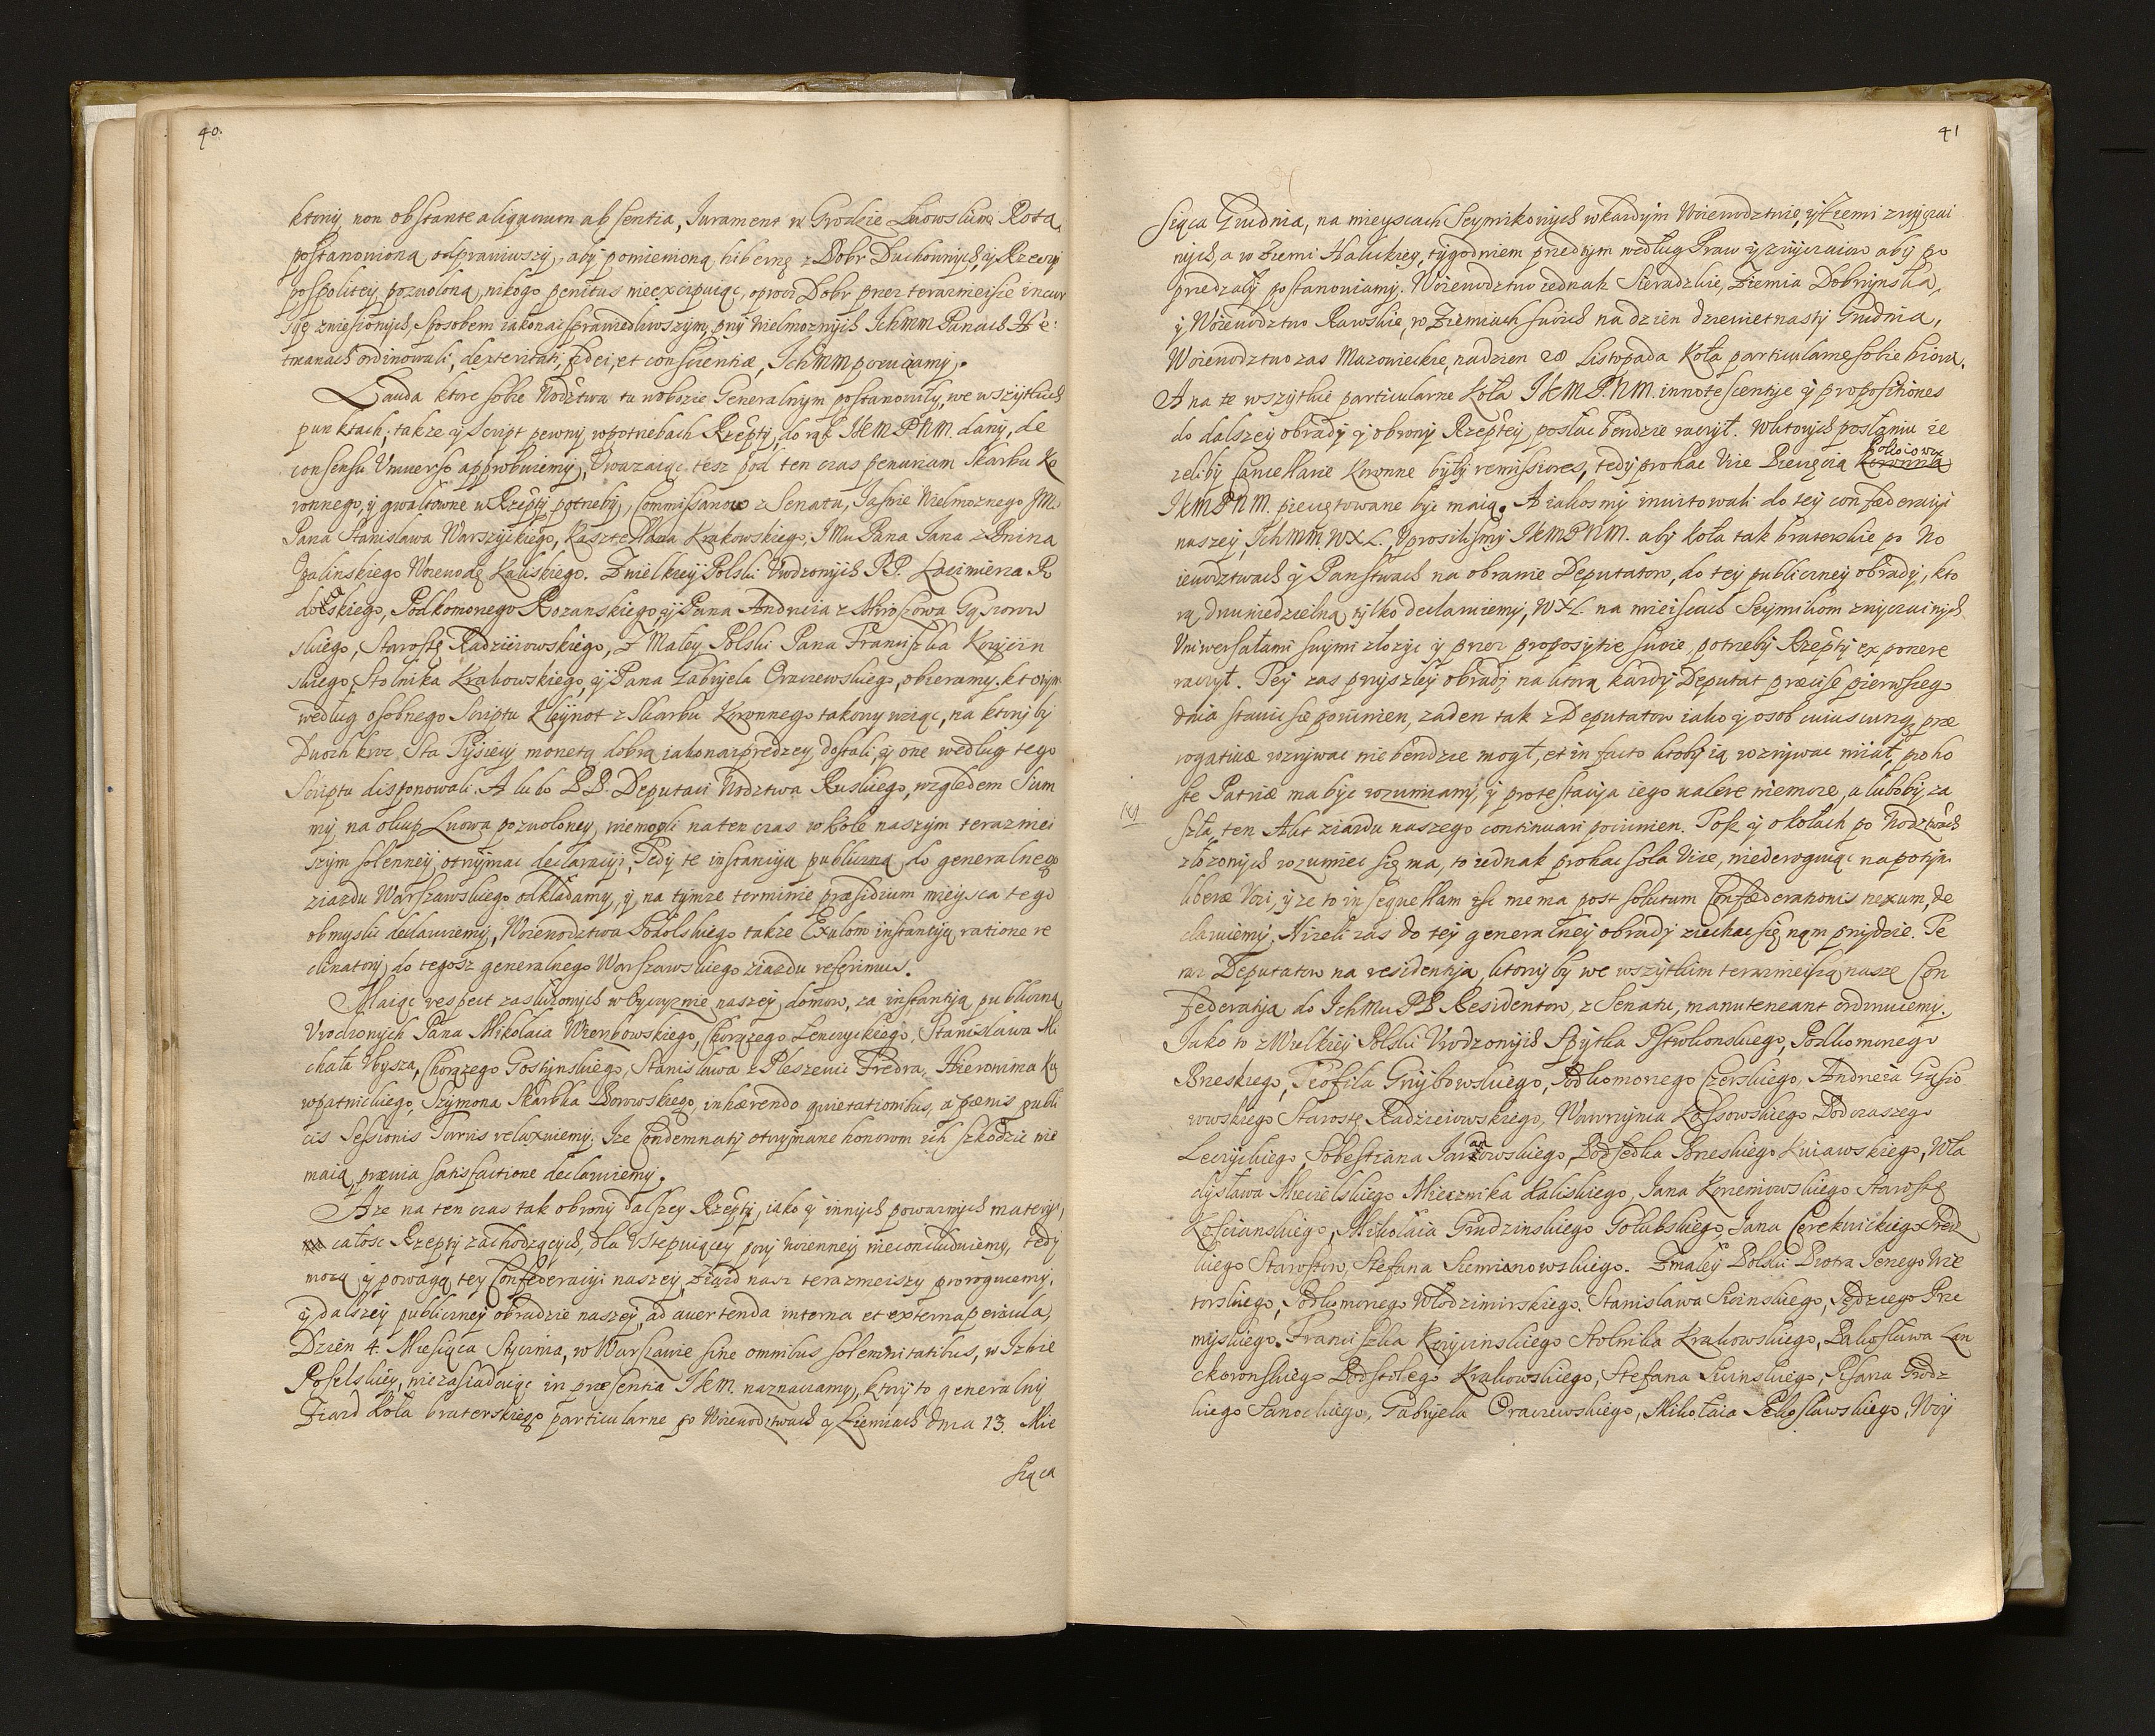 40.
ktorÿ non obstante aliquorum absentia, Iurament w Grodzie Lwowskim Rotą
postanowioną odprawiwszÿ, abÿ pomienioną hibernę z Dobr Duchownÿch, ÿ Rzeczÿ
pospolitey pozwoloną, nikogo penitus nieexcipuiąc, oprocz Dobr przez terazniejsze incur
sÿę zniesionÿch, sposobem iakonaÿsprawiedliwszÿm, przÿ Wielmoznÿch Ichmm Panach He:
tmanach ordinowali, dexteritati, fidei, et conscientiæ, Ichmm porucząmÿ.
Lauda ktore sobie Wodztwa tu wobozie Generalnym postanowiłÿ, we wszÿtkich
punktach; takze ÿ Script pewnÿ wpotrzebach Rzeptÿ, do rąk JKM PNM. danÿ, de
consensu Vniuerso approbuiemÿ, Vwazaiąc tesz pod ten czas penuriam Skarbu Ko
ronnego, ÿ gwałtowne w Rzeptÿ potrzebÿ, Commissarzow z Senatu, Jasnie Wielmoznego JMci
Pana Stanisława Warszÿckiego, Kasztellana Krakowskiego, IMci Pana Jana z Bnina
Opalinskiego Woiewodę Kaliskiego. Z wielkieÿ Polski Vrodzonÿch PP. Kazimierza Ro
do skiego, Podkomorzego Rozanskiego, ÿ Pana Andrzeia z Mroczowa Gąsiorow
skiego, Starostę Radzieiowskiego, z Małey Polski Pana Franciszka Korÿcin
skiego, Stolnika Krakowskiego, ÿ Pana Gabrÿela Oraczewskiego, obieramy. ktorÿm
według osobnego Scriptu Kleÿnot z Skarbu Koronnego takowy wziąc, na ktorÿ bÿ
Dwoch kroc Sta Tÿsięcÿ monetą dobrą iakonaÿprędzey dostali, ÿ one według tego
Scriptu disponowali. A lubo PP. Deputaci Wodztwa Ruskiego, względem Sum
mÿ, na okup Lwowa pozwoloney, niemogli naten czas w Kole naszÿm terazniei
szÿm solennieÿ otrzÿmac declaracyi, Tedÿ te instancÿą publiczną do generalnego
ziazdu Warszawskiego odkładamy, ÿ na tÿmze terminie præsidium mieÿsca tego
obmyslic declaruiemÿ, Woiewodztwa Podolskiego takze Exulow instancÿą ratione re
clinatorÿ, do tegosz generalnego Warszawskiego ziazdu referimus.
Maiąc respect zasłuzonÿch w Oÿczÿznie naszeÿ domow, za instantią publiczną
Vrodzonÿch Pana Mikołaia Wierzbowskiego, Chorązego Lenczyckiego, Stanisława Mi
chała Vbysza, Chorązego Gostÿnskiego, Stanisława z Pleszewic Fredra, Hieronima Ku
ropatnickiego, Szÿmona Skarbka Borowskiego, inhærendo quietationibus, a pœnis publi
cis Sessionis Turris relaxuiemÿ. Ize Condemnatÿ otrzÿmane honorom ich szkodzic nie
maią, prævia satisfactione declaruiemÿ.
A ze na ten czas tak obronÿ dalszey Rzeptÿ, iako ÿ innÿch powaznÿch materÿi,
całosc Rzeptÿ zachodzącÿch, dla Vstępuiącey porÿ woienneÿ nieconcluduiemÿ, tedÿ
mocą ÿ powagą tey Confederacÿi naszeÿ, Ziazd nasz terazneiszy proroguiemÿ,
ÿ dalszeÿ publiczneÿ obradzie naszeÿ, ad auertenda interna et externa pericula,
Dzien 4. Miesiąca Stÿcznia, w Warszawie sine omnibus solemnitatibus, w Izbie
Poselskiey, niezasiadaiąc in præsentia JKM. naznaczamy, ktorÿ to generalnÿ
Ziazd Koła braterskiego particularne po Woiewodztwach ÿ Ziemiach dnia 13. Mie
siąca
41
siąca Grudnia, na mieyscach Seymikowych w kazdÿm Woiewodztwie, ÿ Ziemi zwÿczai
nÿch, a w Ziemi Halickiey, tÿgodniem przedtÿm według Praw ÿ zwÿczaiow abÿ po
przedzałÿ postanowiamÿ. Woiewodztwo iednak Sieradzkie, Ziemia Dobrzynska,
ÿ Woiewodztwo Rawskie, w Ziemiach swoich na dzien dziewietnastÿ Grudnia,
Woiewodztwo zas Mazowieckie, nadzien 28 Listopada Koła particularne sobie biorą.
A na te wszÿtkie particularne Koła JKM P.NM. innotescentÿe ÿ propositiones
do dalszeÿ obradÿ ÿ obronÿ Rzepteÿ, posłac bendzie raczÿł. Wktorÿch posłaniu ie
zelibÿ Cancellarie Koronne bÿłÿ remissiores, tedÿ pro hac Vice Pieczęcią Koronną Pokoiową
JKM PNM. pieczętowane bÿc maią. A iakosmÿ inuitowali do tey confœderacÿi
naszeÿ, Ichmm, WXL. Vprosilismy JKMPNM. aby koła tak braterskie po Wo
iewodztwach ÿ Panstwach na obranie Deputatow, do teÿ publiczney obradÿ, kto
rą dwuniedzielną tÿlko declaruiemÿ, WXL. na mieiscach Seymikom zwÿczainÿch
Vniwersałami swÿmi złozÿc ÿ przez proposÿtie swoie, potrzebÿ Rzeptÿ exponere
raczÿł. Teÿ zas przÿszłeÿ obradÿ, na ktorą kazdÿ Deputat præcise pierwszego
dnia stawic się powinien, zaden tak z Deputatow iako ÿ osob cuiuscunq præ
rogatiuæ rozrÿwac nie bendzie mogł, et in facto ktobÿ ią rozrÿwac miał, pro ho
ste Patriæ ma bÿc rozumianÿ, ÿ protestacÿa iego ualere niemoze, a lubobÿ za
szła, ten Akt ziazdu naszego continuari powinien. Tosz ÿ okołach po Wodztwach
złozonÿch rozumiec się ma, to iednak pro hac sola Vice, niederoguiąc napotÿm
liberæ Voci, ÿ ze to in sequellam isc nie ma post solutum Confœderationis nexum, de
claruiemÿ. Nizeli zas do teÿ generalneÿ obradÿ ziechac się nąm przÿdzie. Te
raz Deputatow na residentÿą, ktorÿ by we wszÿtkim terazneiszą naszę Con
federatÿą do Ichmci PP Residentow, z Senatu, manuteneant ordinuiemy.
Jako to z Wielkieÿ Polski Vrodzonÿch Spÿtka Pstrokonskiego, Podkomorzego
Brzeskiego, Teofila Grzÿbowskiego, Podkomorzego Czerskiego, Andrzeia Gąsio
rowskiego Starostę Radzieiowskiego, Wawrzÿnca Kossowskiego Podczaszego
Leczÿckiego, Sobestiana Jarzowskiego, Podsedka Brzeskiego Kuiawskiego, Wła
dÿsława Mycielskiego Miecznika Kaliskiego, Jana Korzeniowskiego Starostę
Kosciąnskiego, Mikołaia Grudzinskiego Golubskiego, Jana Cerekwickiego Sredz
kiego Starostow, Stefana Siemianowskiego. Z małeÿ Polski Piotra Jerzego Wie
torskiego, Podkomorzego Włodzimirskiego. Stanisława Siecinskiego, Sędziego Prze
mÿskiego. Franciszka Korÿcinskiego Stolnika Krakowskiego, Pakosława Lan
ckoronskiego Podstolego Krakowskiego, Stefana Siecinskiego, Pisarza Grodz
kiego Sanockiego, Gabrÿela Oraczewskiego, Mikołaia Pełkosławskiego, Woÿ